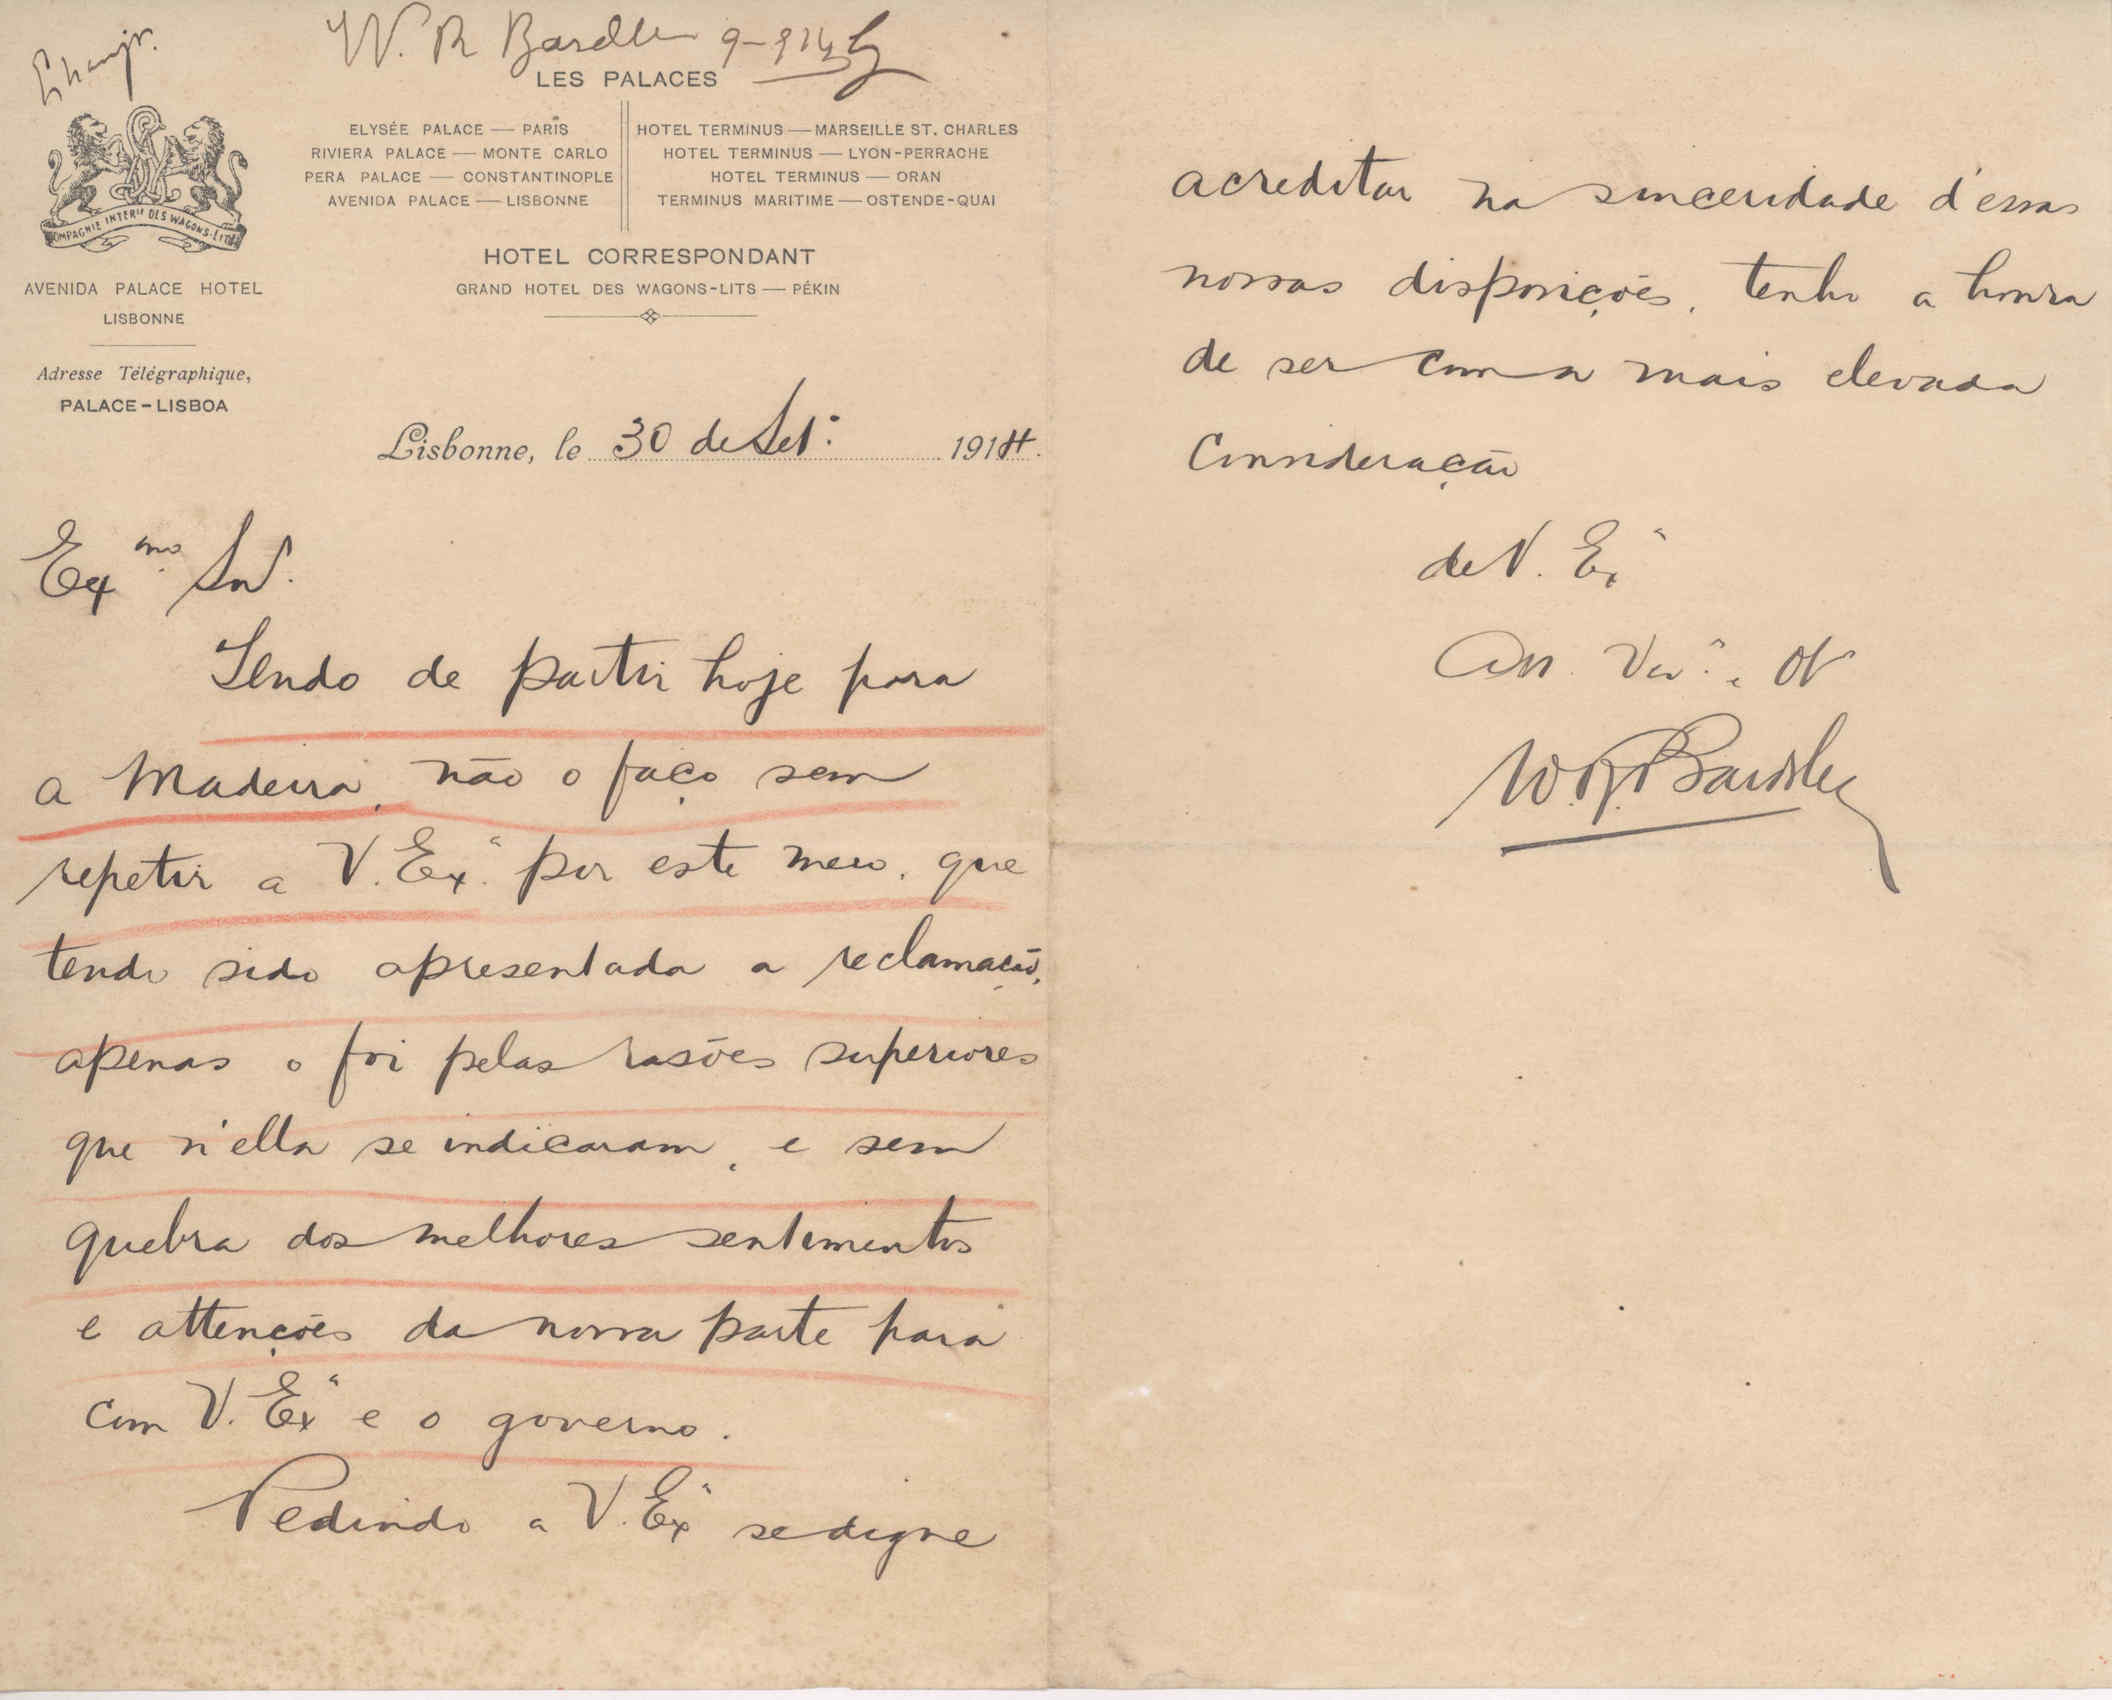 W. R Bardsley 9-914
LES PALACES
ELYSÉE PALACE — PARIS
RIVIERA PALACE — MONTE CARLO
PERA PALACE — CONSTANTINOPLE
AVENIDA PALACE — LISBONNE
HOTEL TERMINUS — MARSEILLE ST. CHARLES
HOTEL TERMINUS — LYON-PERRACHE
HOTEL TERMINUS — ORAN
TERMINUS MARITIME — OSTENDE-QUAI
HOTEL CORRESPONDANT
GRAND HOTEL DES WAGONS-LITS — PÉKIN
COMPAGNIE INTERle DES WAGONS-LITS
AVENIDA PALACE HOTEL
LISBONNE
Adresse Télégraphique,
PALACE-LISBOA
Lisbonne, le 30 de Set: 1914.
Exmo Snr.
Tendo de partir hoje para
a Madeira, não o faço sem
repetir a V. Exª por este meio, que
tendo sido apresentada a reclamação,
apenas o foi pelas rasões superiores
que n'ella se indicaram, e sem
quebra dos melhores sentimentos
e attenções da nossa parte para
com V. Exª e o governo.
Pedindo a V. Exª se digne
acreditar na sinceridade d'essas
nossas disposições, tenho a honra
de ser com a mais elevada
Consideração
de V. Exª
Att. Ven.or e
W. R. Bardsley